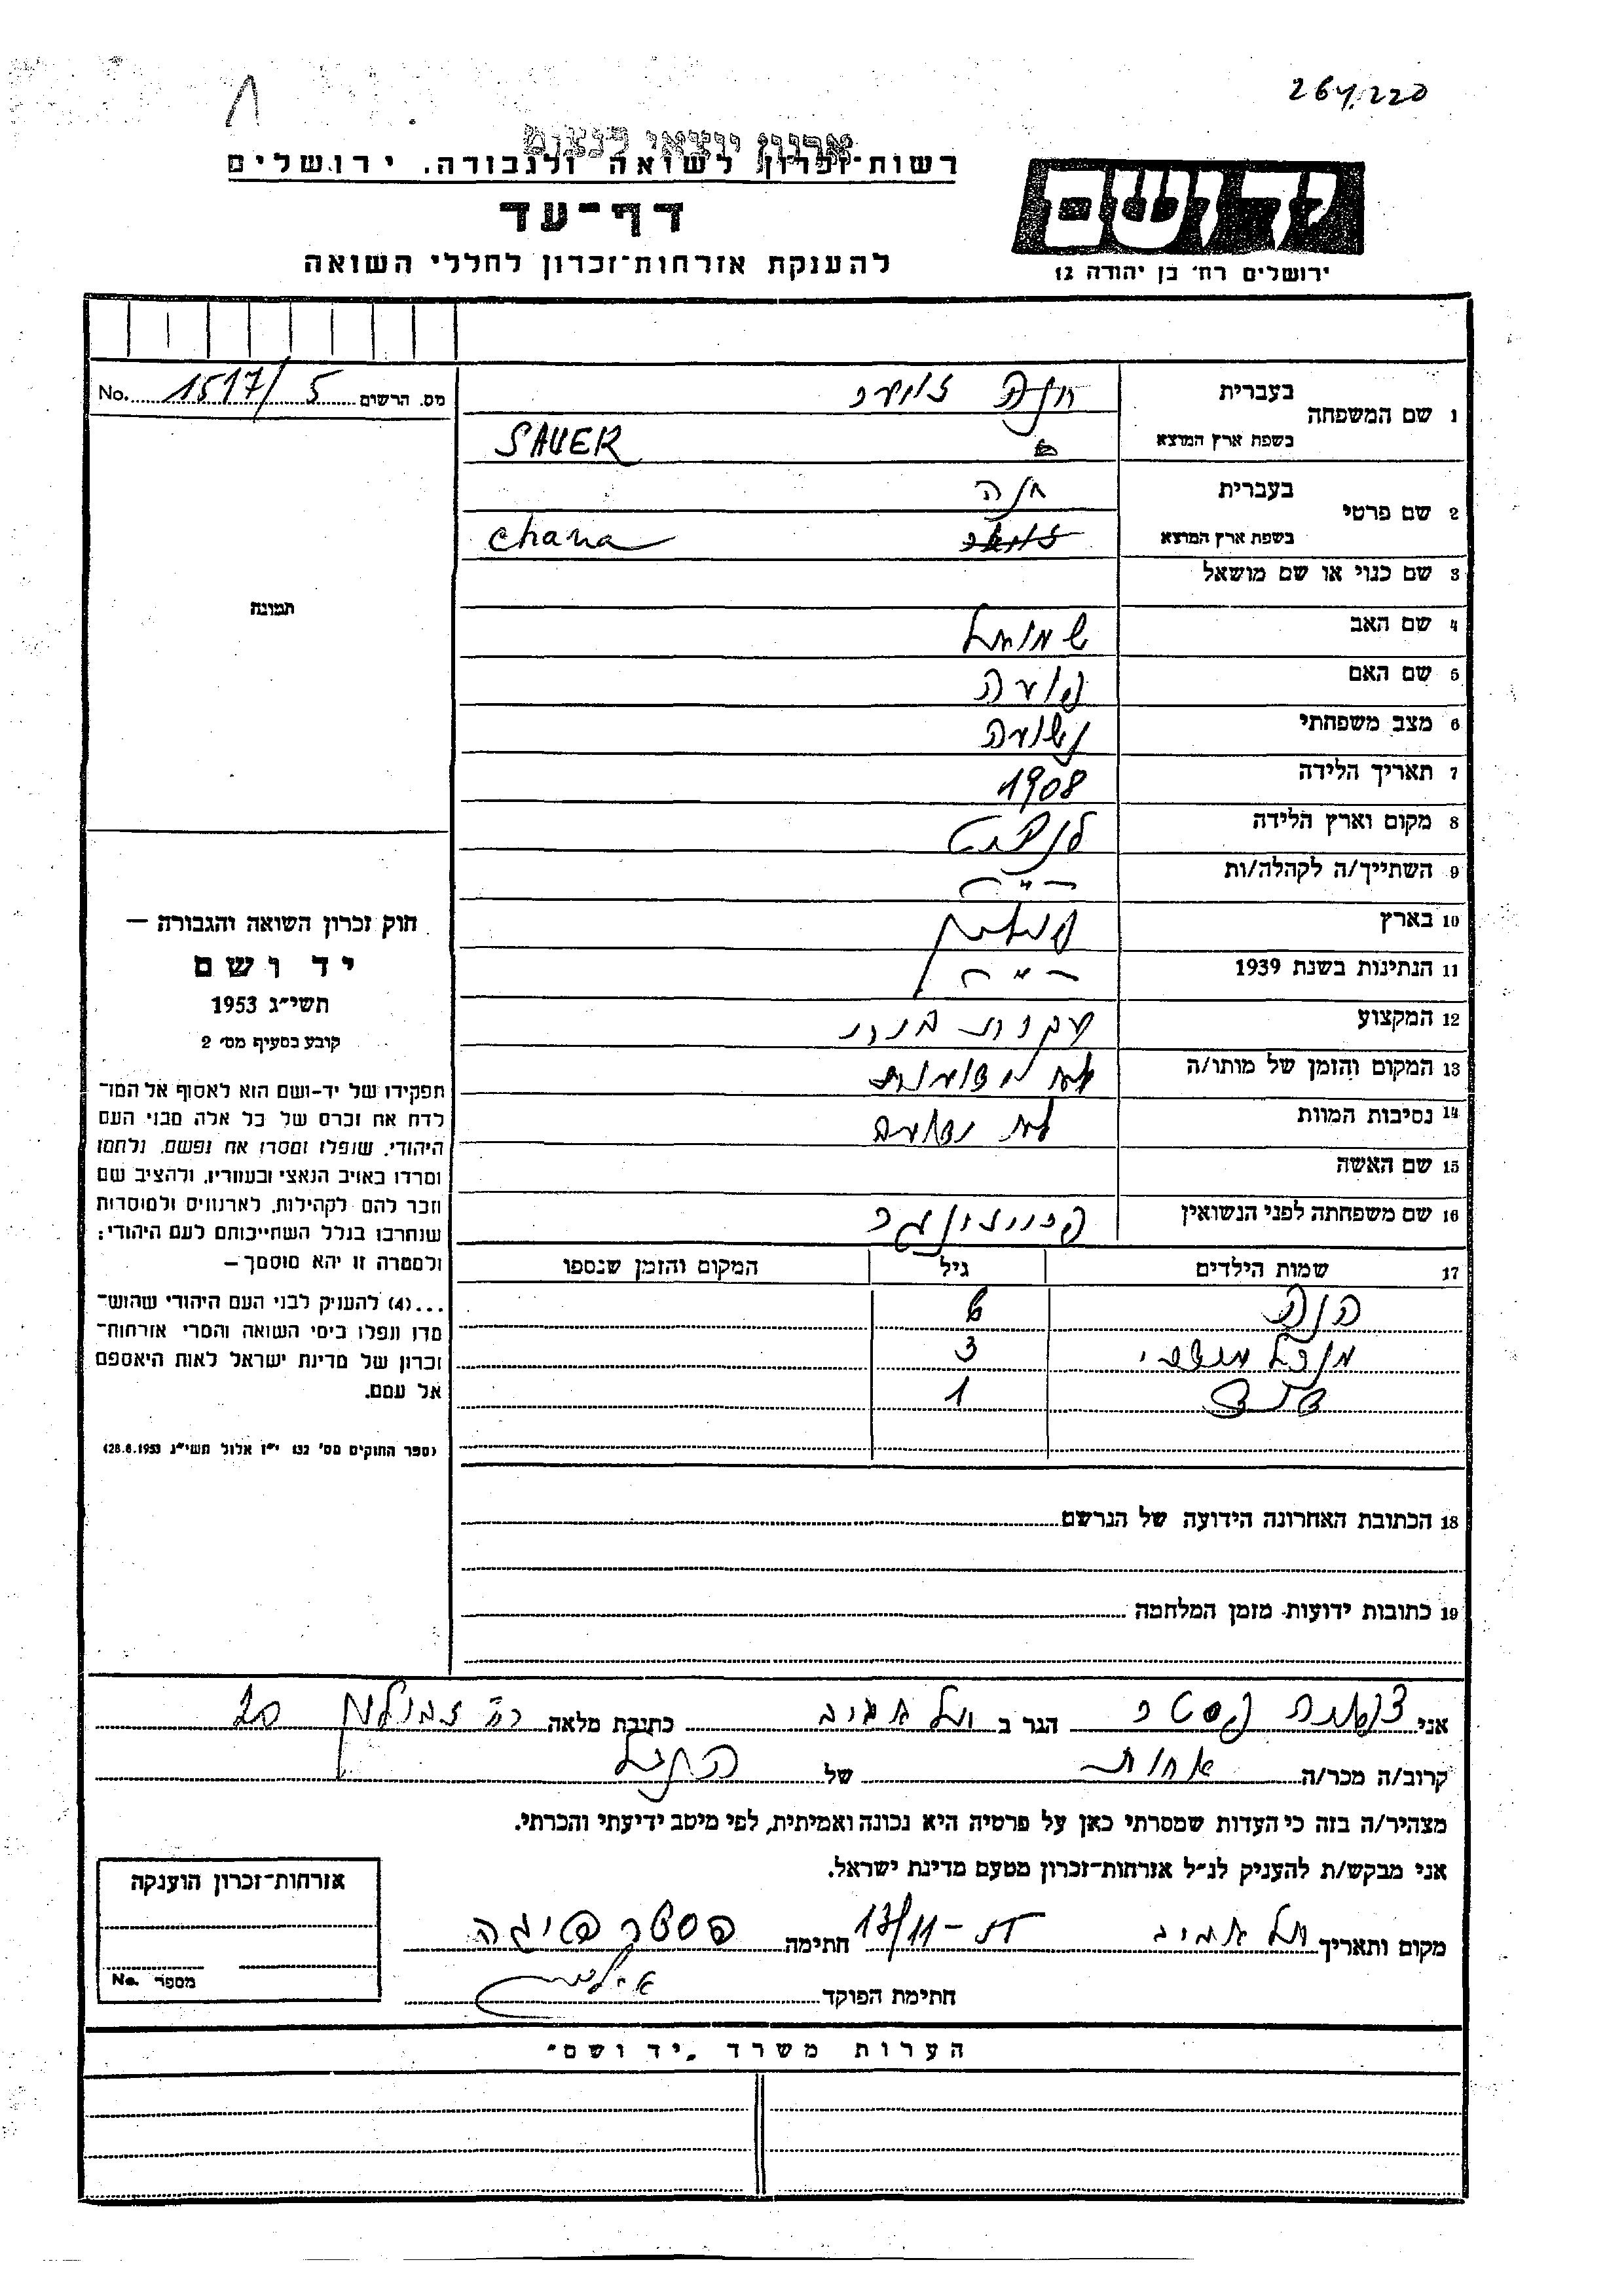 264.220
ארגון יוצאי לנצוט
רשות-זכרון לשואה ולגבורה. ירושלים
דף-עד
להענקת אזרחות-זכרון לחללי השואה
ירושלים רח' בן יהודה 12
No. 1517/5 מס. הרשום
1 שם המשפחה בעברית
בשפת ארץ המוצא SAUER
2 שם פרטי בעברית חנה
בשפת ארץ המוצא chana
3 שם כנוי או שם מושאל
4 שם האב שמואל
5 שם האם
6 מצב משפחתי נשואה
7 תאריך הלידה 1908
8 מקום וארץ הלידה לנצוט
9 השתייך/ה לקהלה/ות -"-
10 בארץ פולין
11 הנתינות בשנת 1939 -"-
12 המקצוע עקרת בית
13 המקום והזמן של מותו/ה
14 נסיבות המוות
15 שם האשה
16 שם משפחתה לפני הנשואין
17 שמות הילדים גיל המקום והזמן שנספו
6
3
1
18 הכתובת האחרונה הידועה של הנרשם
19 כתובות ידועות מזמן המלחמה
תמונה
חוק זכרון השואה והגבורה –
יד ושם
תשי"ג 1953
קובע בסעיף מס' 2
תפקידו של יד-ושם הוא לאסוף אל המו־
לדת את זכרם של כל אלה מבני העם
היהודי, שנפלו ומסרו את נפשם, נלחמו
ומרדו באויב הנאצי ובעוזריו, ולהציב שם
וזכר להם לקהילות, לארגונים ולמוסדות
שנחרבו בגלל השתייכותם לעם היהודי;
ולמטרה זו יהא מוסמך –
...(4) להעניק לבני העם היהודי שהוש־
מדו ונפלו בימי השואה והמרי אזרחות־
זכרון של מדינת ישראל לאות היאספם
אל עמם.
(ספר החוקים מס' 132 י"ז אלול תשי"ג 28.8.1953)
אני הגר ב תל אביב כתובת מלאה רח' זבולון 20
קרוב/ה מכר/ה אחות של הנ"ל
מצהיר/ה בזה כי העדות שמסרתי כאן על פרטיה היא נכונה ואמיתית, לפי מיטב ידיעתי והכרתי.
אני מבקש/ת להעניק לנ"ל אזרחות-זכרון מטעם מדינת ישראל.
מקום ותאריך תל אביב 17/11- חתימה פסטר פייגה
חתימת הפוקד
אזרחות-זכרון הוענקה
מספר No.
הערות משרד "יד ושם"